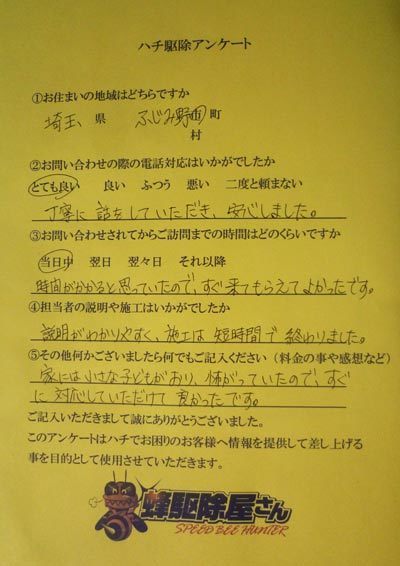 ハチ駆除アンケート
①お住まいの地域はどちらですか
埼玉 県 ふじみ野市 町
村
②お問い合わせの際の電話対応はいかがでしたか
とても良い 良い ふつう 悪い 二度と頼まない
丁寧に話をしていただき、安心しました。
③お問い合わせされてからご訪問までの時間はどのくらいですか
当日中 翌日 翌々日 それ以降
時間がかかると思っていたので、すぐ来てもらえてよかったです。
④担当者の説明や施工はいかがでしたか
説明がわかりやすく、施工は短時間で終わりました。
⑤その他何かございましたら何でもご記入ください（料金の事や感想など）
家には小さな子どもがおり、怖がっていたので、すぐ
に対応していただけて良かったです。
ご記入いただきまして誠にありがとうございました。
このアンケートはハチでお困りのお客様へ情報を提供して差し上げる
事を目的として使用させていただきます。
蜂駆除屋さん
SPEED BEE HUNTER